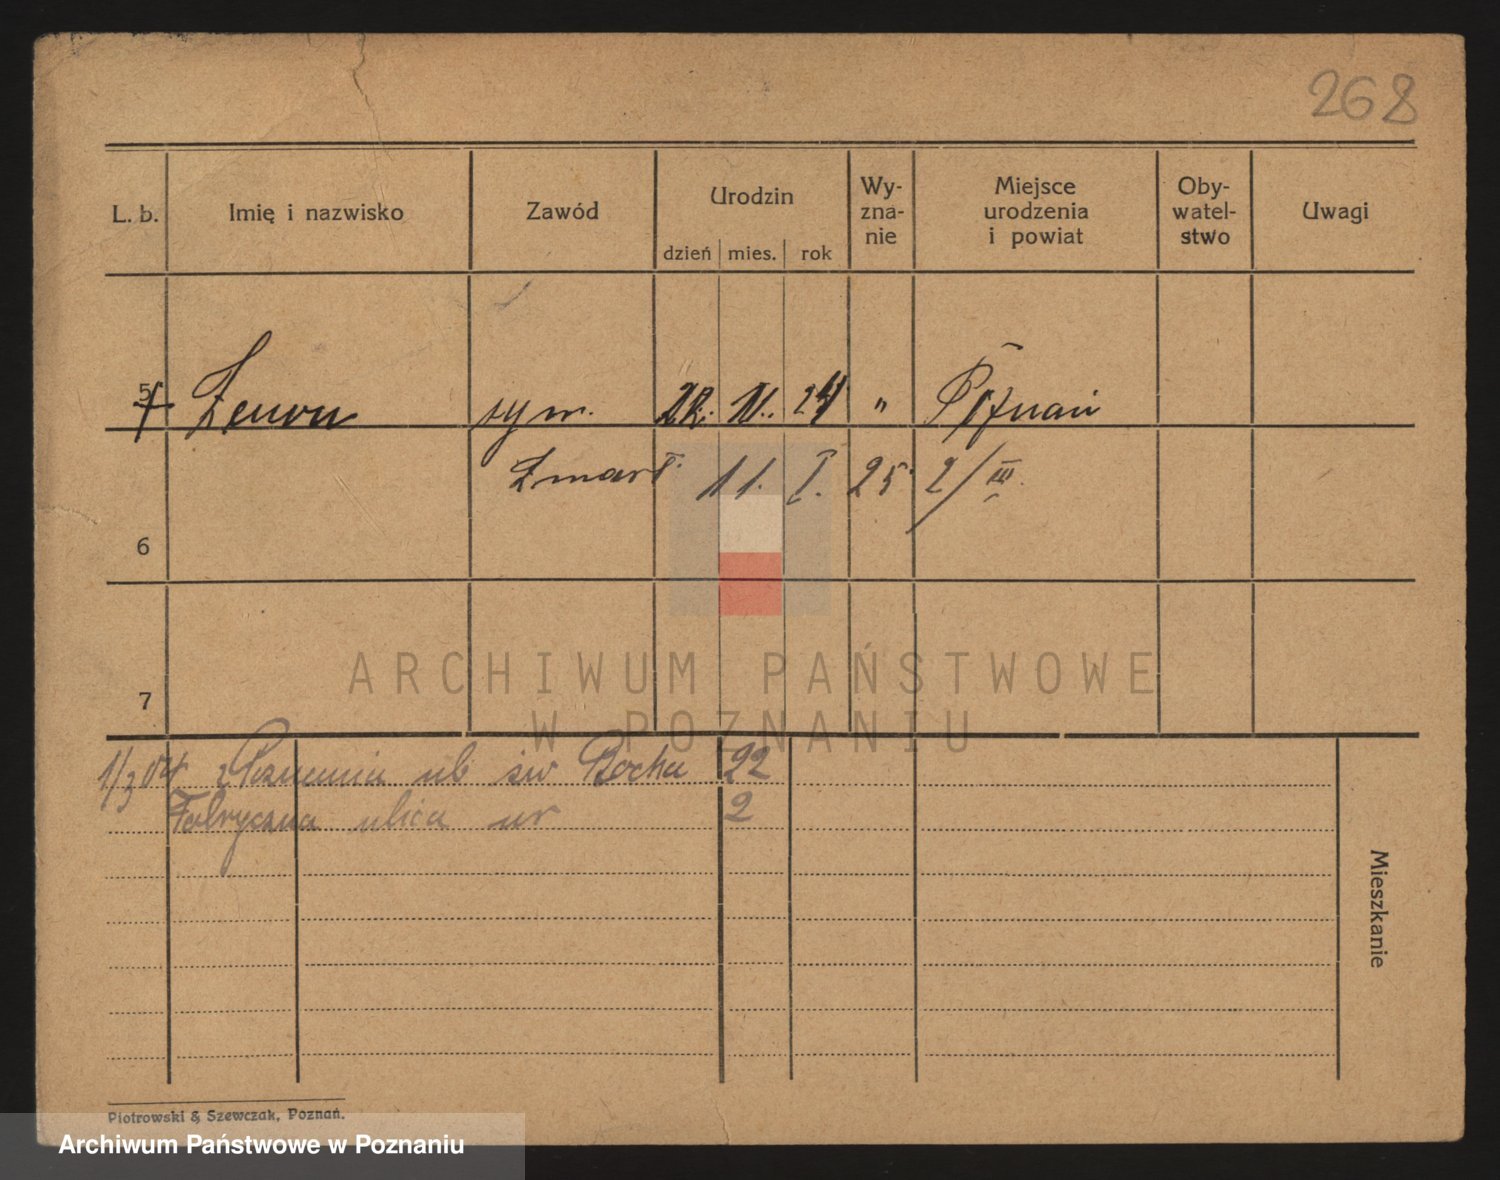 268
L. b. Imię i nazwisko Zawód Urodzin Wy-zna-nie Miejsce urodzenia i powiat Oby-watel-stwo Uwagi
dzień mies. rok
5 Zenon syn. 22. 24 " Poznań
Zmarł. 11. I. 25 2/III.
6
7
ARCHIWUM PAŃSTWOWE
W POZNANIU
1/3 04 z Poznania ul św Rocha 22
Fabryczna ulica nr 2
Mieszkanie
Piotrowski & Szewczak, Poznań.
Archiwum Państwowe w Poznaniu